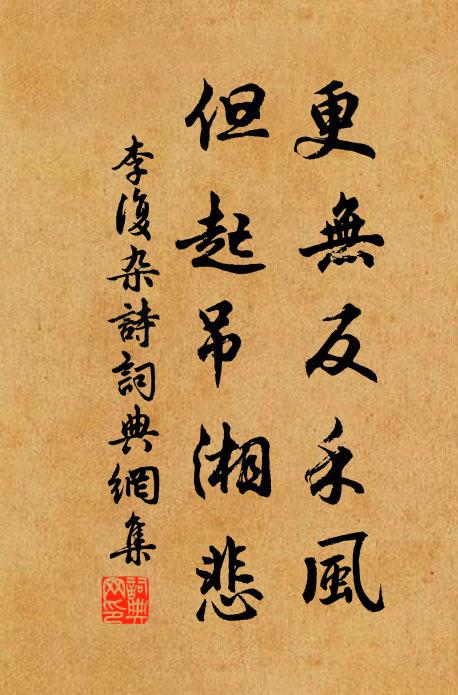 更無反禾風
但起吊湘悲
李復杂詩詞典網集
詞典网印